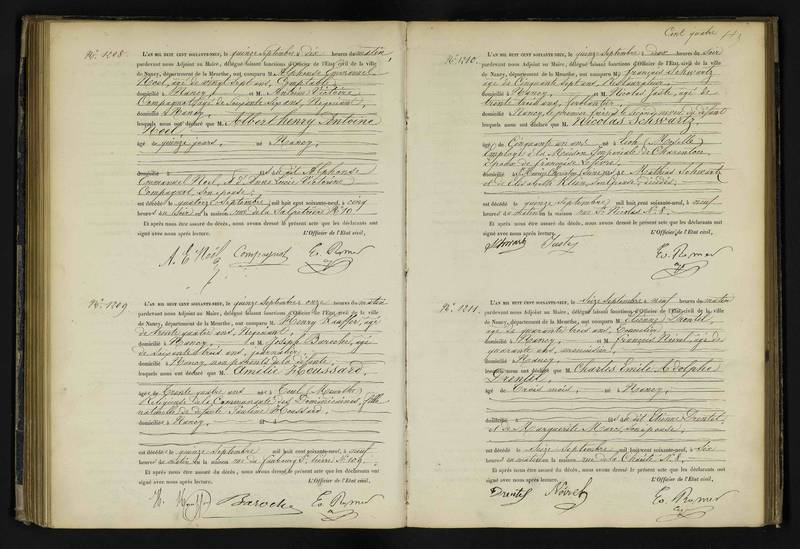 Cent quatre
N°. 1208.
L'AN MIL HUIT CENT SOIXANTE-NEUF, le quinze Septembre à dix heures du matin,
pardevant nous Adjoint au Maire, délégué faisant fonctions d'Officier de l'Etat civil de la ville
de Nancy, département de la Meurthe, ont comparu M. Alphonse Emmanuel
Noel, âgé de vingt sept ans, Comptable,
domicilié à Nancy, et M. Antoine Victoire
Compagnot, âgé de soixante sept ans, Négociant,
domicilié à Nancy,
lesquels nous ont déclaré que M. Albert Henry Antoine
Noel,
âgé de quinze jours, né à Nancy,
domicilié à fils de Alphonse
Emmanuel Noel, & d'Anne Lucie Victoire
Compagnot, son épouse,
est décédé le quatorze Septembre, mil huit cent soixante-neuf, à cinq
heures du soir en la maison rue de la Salpêtrière N° 10
Et après nous être assuré du décès, nous avons dressé le présent acte que les déclarants ont
signé avec nous après lecture. L'Officier de l'Etat civil,
A. E. Noël Compagnot
N°. 1209
L'AN MIL HUIT CENT SOIXANTE-NEUF, le quinze Septembre onze heures du matin
pardevant nous Adjoint au Maire, délégué faisant fonctions d'Officier de l'Etat civil de la ville
de Nancy, département de la Meurthe, ont comparu M. Henry Kauffer, âgé
de trente quatre ans, Négociant,
domicilié à Nancy, et M. Joseph Baroche, âgé
de soixante trois ans, journalier,
domicilié à Nancy, non parents de la défunte,
lesquels nous ont déclaré que M. Amélie Houssard,
âgée de trente quatre ans née à Toul (Meurthe)
Religieuse de la Communauté des Dominicaines, fille
naturelle de défunte Pauline Houssard,
domiciliée à Nancy,
est décédée le quinze Septembre mil huit cent soixante-neuf, à neuf
heures du matin en la maison rue du faubourg St. Pierre N° 109
Et après nous être assuré du décès, nous avons dressé le présent acte que les déclarants ont
signé avec nous après lecture. L'Officier de l'Etat civil,
Baroche
N°. 1210.
L'AN MIL HUIT CENT SOIXANTE-NEUF, le quinze Septembre deux heures du soir
pardevant nous Adjoint au Maire, délégué faisant fonctions d'Officier de l'Etat civil de la ville
de Nancy, département de la Meurthe, ont comparu M. françois Schwartz
âgé de Cinquante sept ans, Restaurateur,
domicilié à Nancy, et M. Nicolas Juste, âgé de
trente trois ans, ferblantier,
domicilié à Nancy, le premier frère le second neveu du défunt
lesquels nous ont déclaré que M. Nicolas Schwartz.
âgé de Cinquante un ans né à (Moselle)
Employé à la Maison Impériale de Charenton,
Epoux de françoise
domicilié à fils de Mathias Schwartz
et de Elisabeth Klein, son épouse, décédés,
est décédé le quinze Septembre mil huit cent soixante-neuf, à neuf
heures du matin en la maison rue St. Nicolas N° 8.
Et après nous être assuré du décès, nous avons dressé le présent acte que les déclarants ont
signé avec nous après lecture. L'Officier de l'Etat civil,
Schwartz Juste
N°. 1211.
L'AN MIL HUIT CENT SOIXANTE-NEUF, le Seize Septembre à neuf heures du matin
pardevant nous Adjoint au Maire, délégué faisant fonctions d'Officier de l'Etat civil de la ville
de Nancy, département de la Meurthe, ont comparu M. Etienne Drentel,
âgé de quarante trois ans,
domicilié à Nancy, et M. françois âgé de
quarante ans, menuisier,
domicilié à Nancy,
lesquels nous ont déclaré que M. Charles Emile Adolphe
Drentel,
âgé de Trois mois, né à Nancy,
domicilié à fils de Etienne Drentel,
et de Marguerite Marc, son épouse,
est décédé le Seize Septembre mil huit cent soixante-neuf, à six
heures du matin en la maison rue de la Charité N° 8.
Et après nous être assuré du décès, nous avons dressé le présent acte que les déclarants ont
signé avec nous après lecture. L'Officier de l'Etat civil,
Drentel